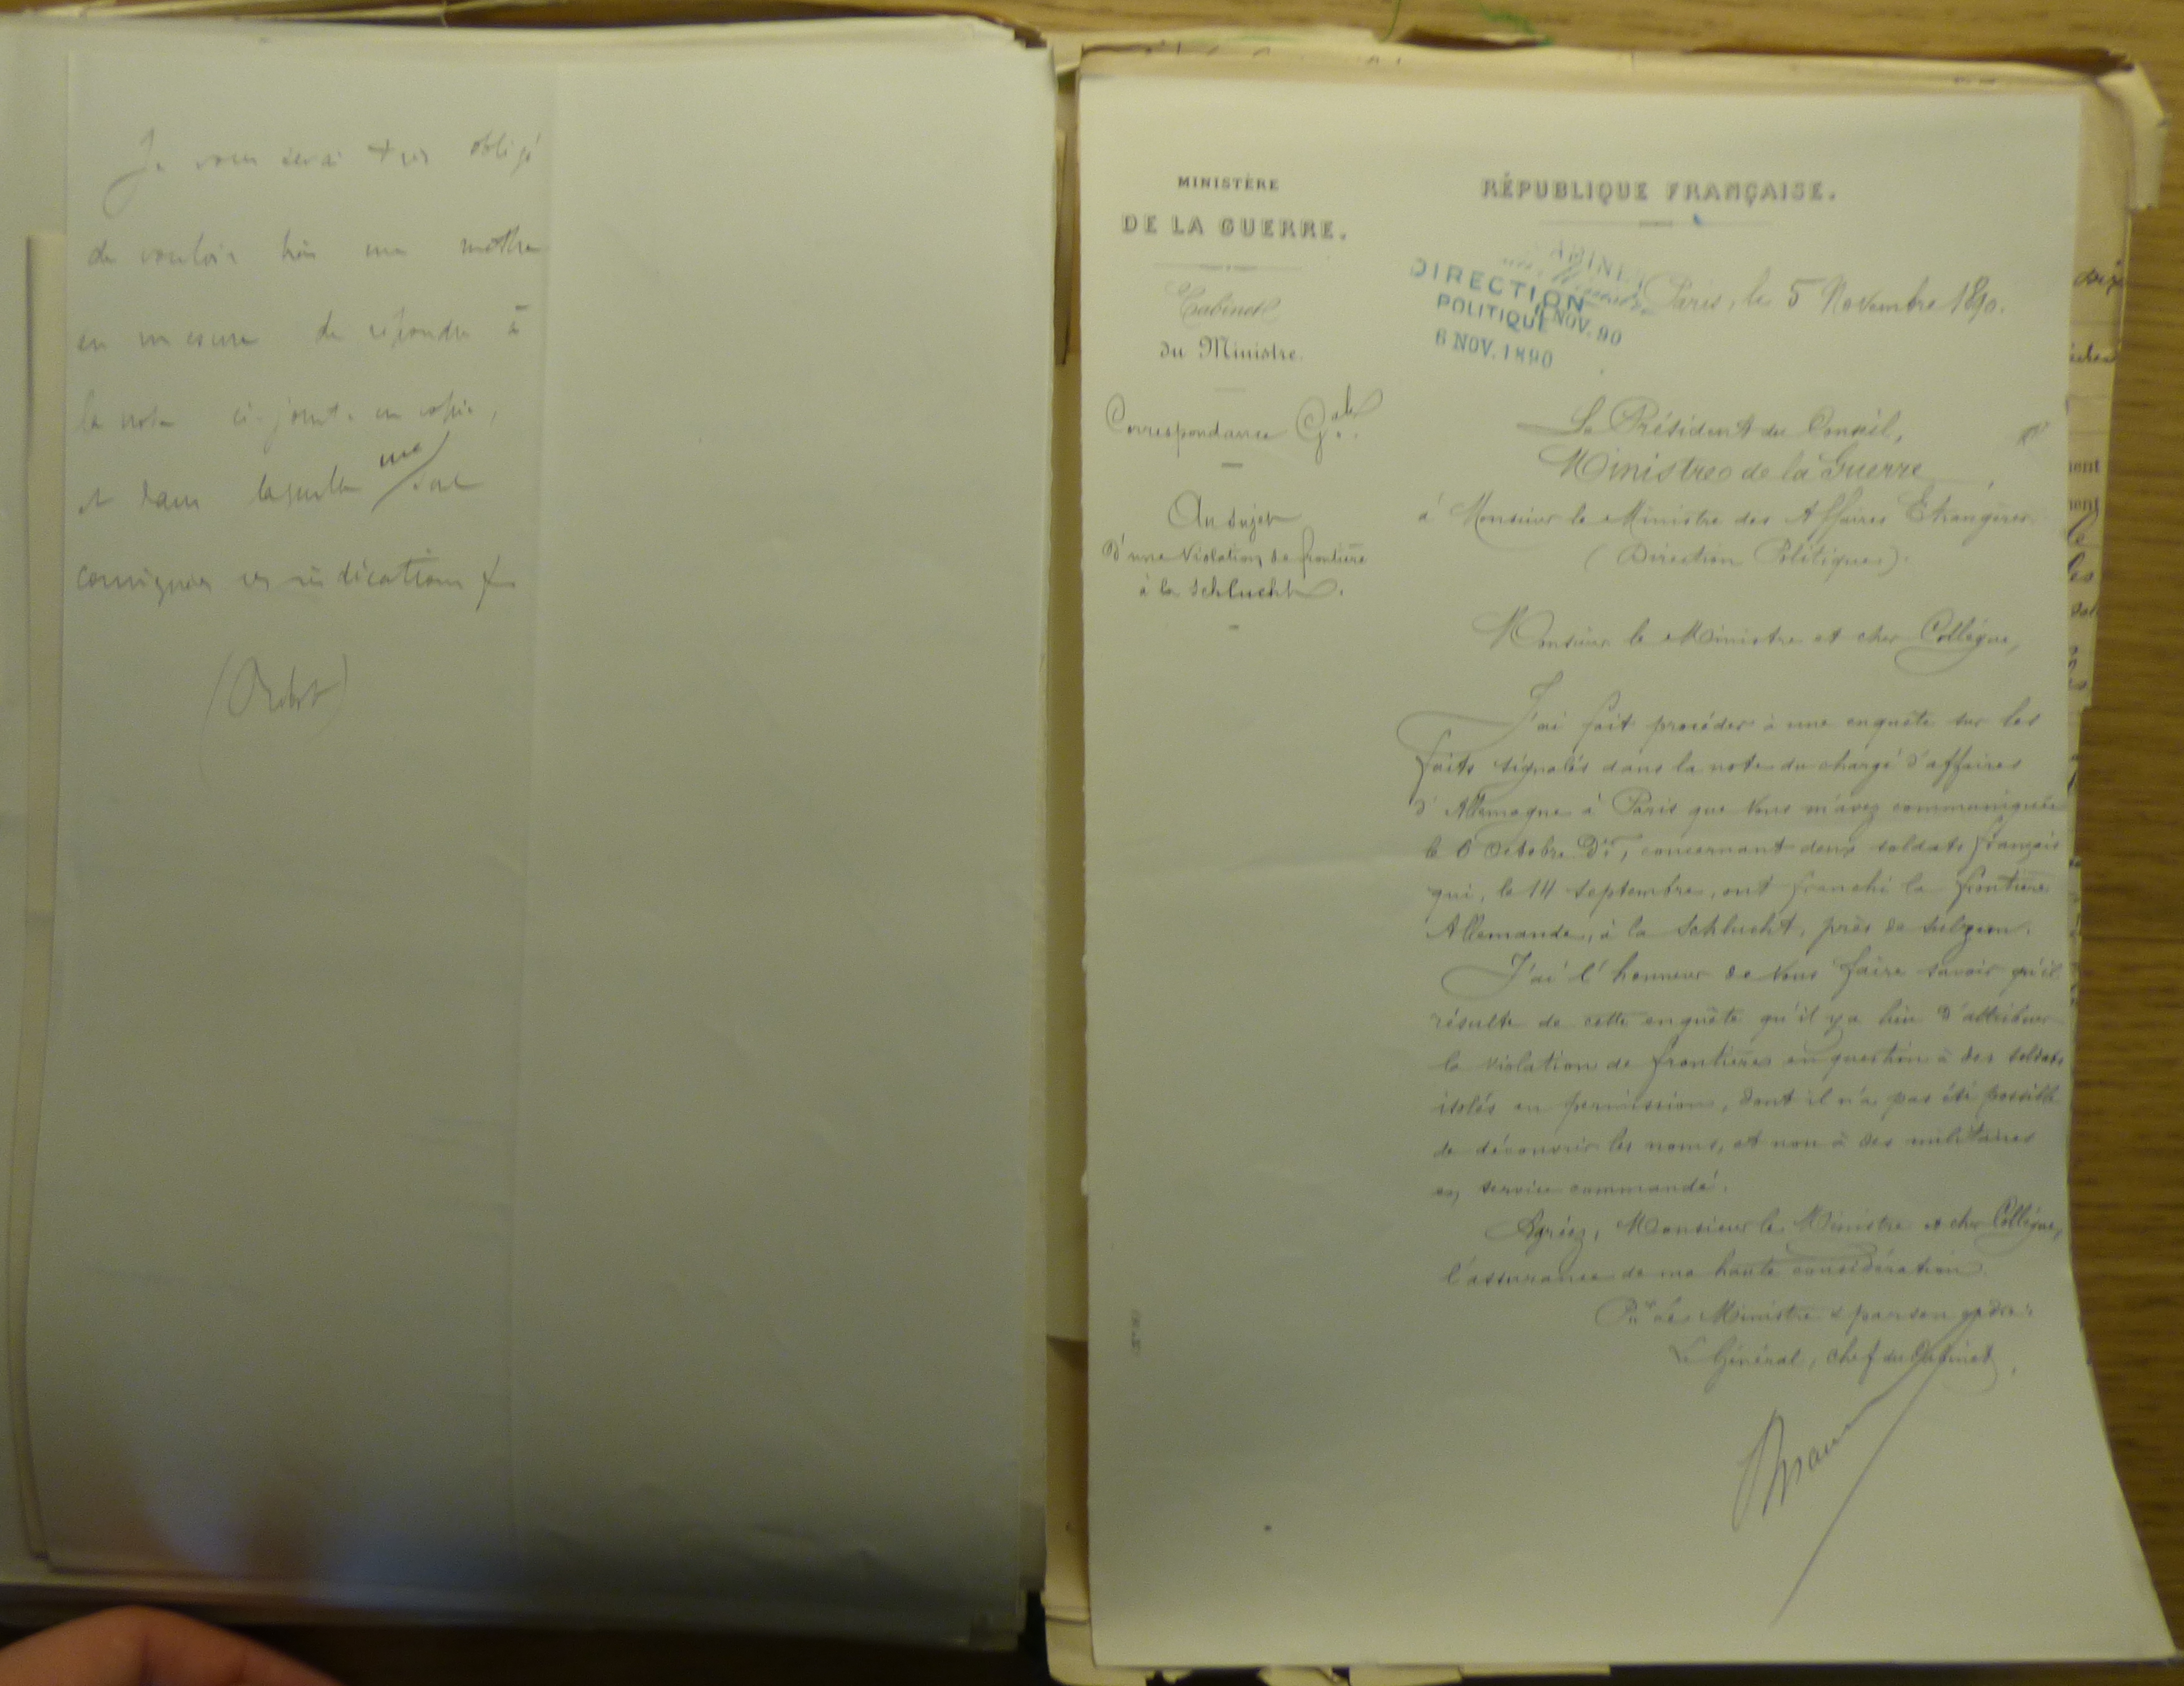 Je vous serai très obligé
de vouloir bien me mettre
en mesure de répondre à
la note ci-jointe en copie,
et dans laquelle me
consignées ces indications
MINISTÈRE
DE LA GUERRE.
Cabinet
du Ministre.
Correspondance Gale.
Au sujet
D'une Violation de frontière
à la Schlucht.
RÉPUBLIQUE FRANÇAISE.
CABINET
DIRECTION
POLITIQUE
NOV. 90
6 NOV. 1890
Paris, le 5 Novembre 1890.
Le Président du Conseil,
Ministre de la Guerre,
à Monsieur le Ministre des Affaires Etrangères
(Direction Politique).
Monsieur le Ministre et cher Collègue,
J'ai fait procéder à une enquête sur les
faits signalés dans la note du chargé d'affaires
d'Allemagne à Paris que vous m'avez communiquée
le 6 Octobre Der, concernant deux soldats français
qui, le 14 Septembre, ont franchi la frontière
Allemande, à la Schlucht, près de Sulzern.
J'ai l'honneur de vous faire savoir qu'il
résulte de cette enquête qu'il y a lieu d'attribuer
la violation de frontière en question à des soldats
isolés en permission, dont il n'a pas été possible
de découvrir les noms, et non à des militaires
en service commandé.
Agréez, Monsieur le Ministre et cher Collègue,
l'assurance de ma haute considération.
Pr le Ministre & par son ordre:
Le Général, chef du Cabinet,